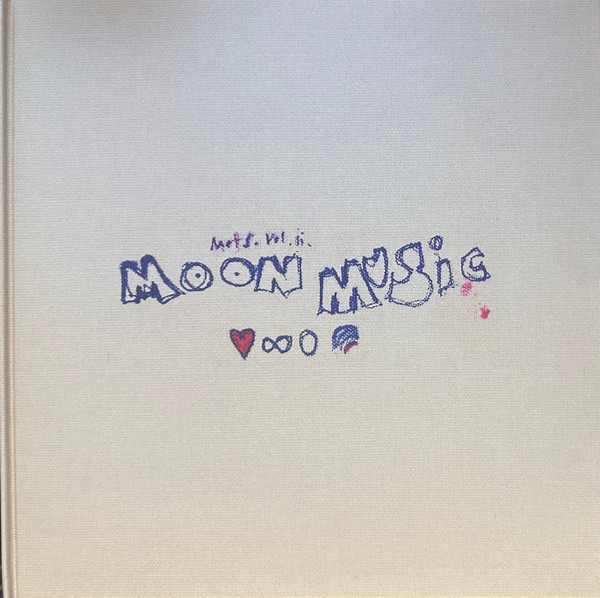 MotS. Vol. ii.
MOON MUSiC